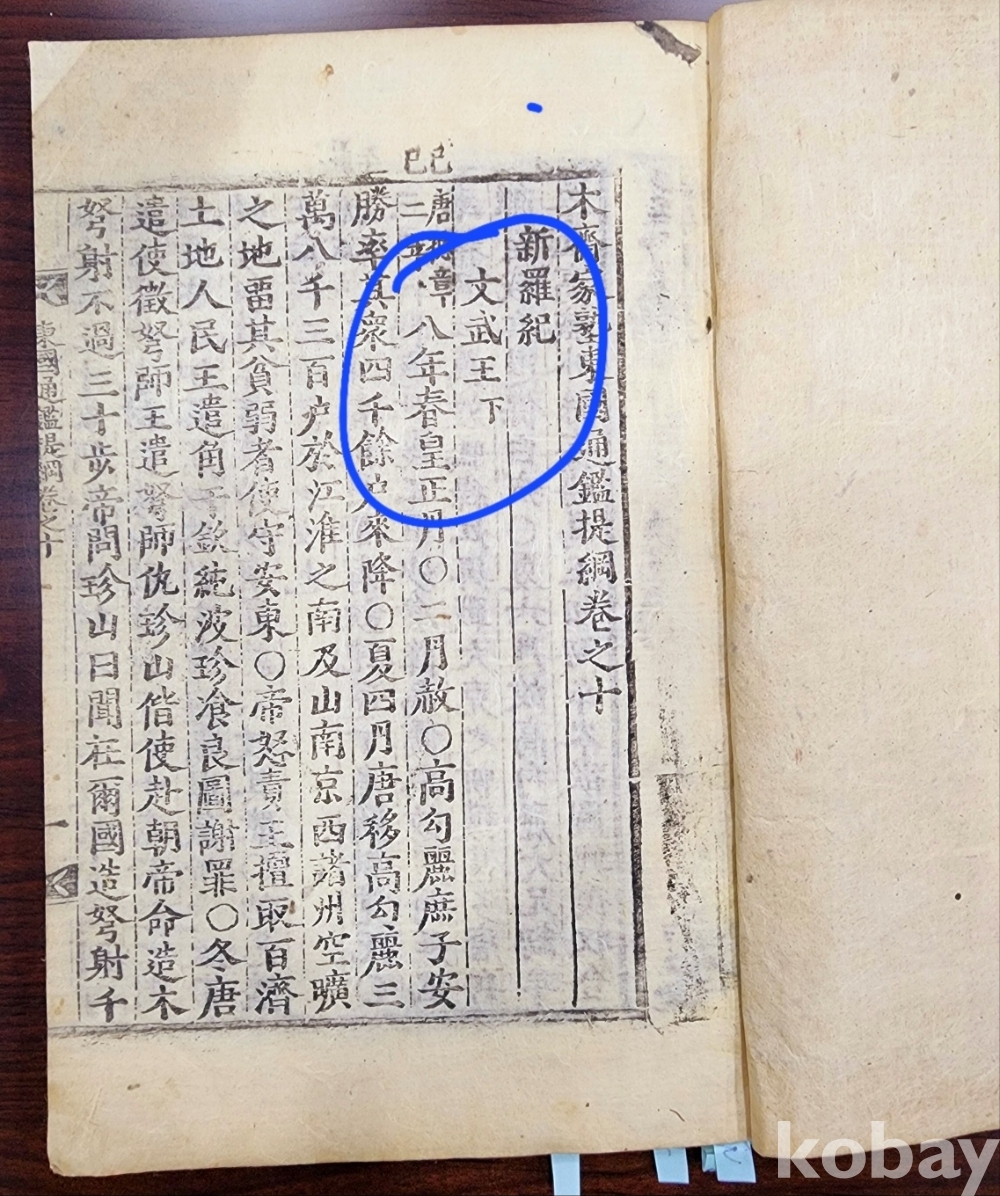 己巳
木齋家塾東國通鑑提綱卷之十
新羅紀
文武王下
唐總章二年八年春皇正月○二月赦○高勾麗庶子安
勝率其衆四千餘户來降○夏四月唐移高勾麗三
萬八千三百户於江淮之南及山南京西諸州空曠
之地畱其貧弱者使守安東○帝怒責王擅取百濟
土地人民王遣角干欽純波珍飡良圖謝罪○冬唐
遣使徵弩師王遣弩師仇珍山偕使赴朝帝命造木
弩射不過三十步帝問珍山曰聞在爾國造弩射千
東國通鑑提綱卷之十
一
kobay